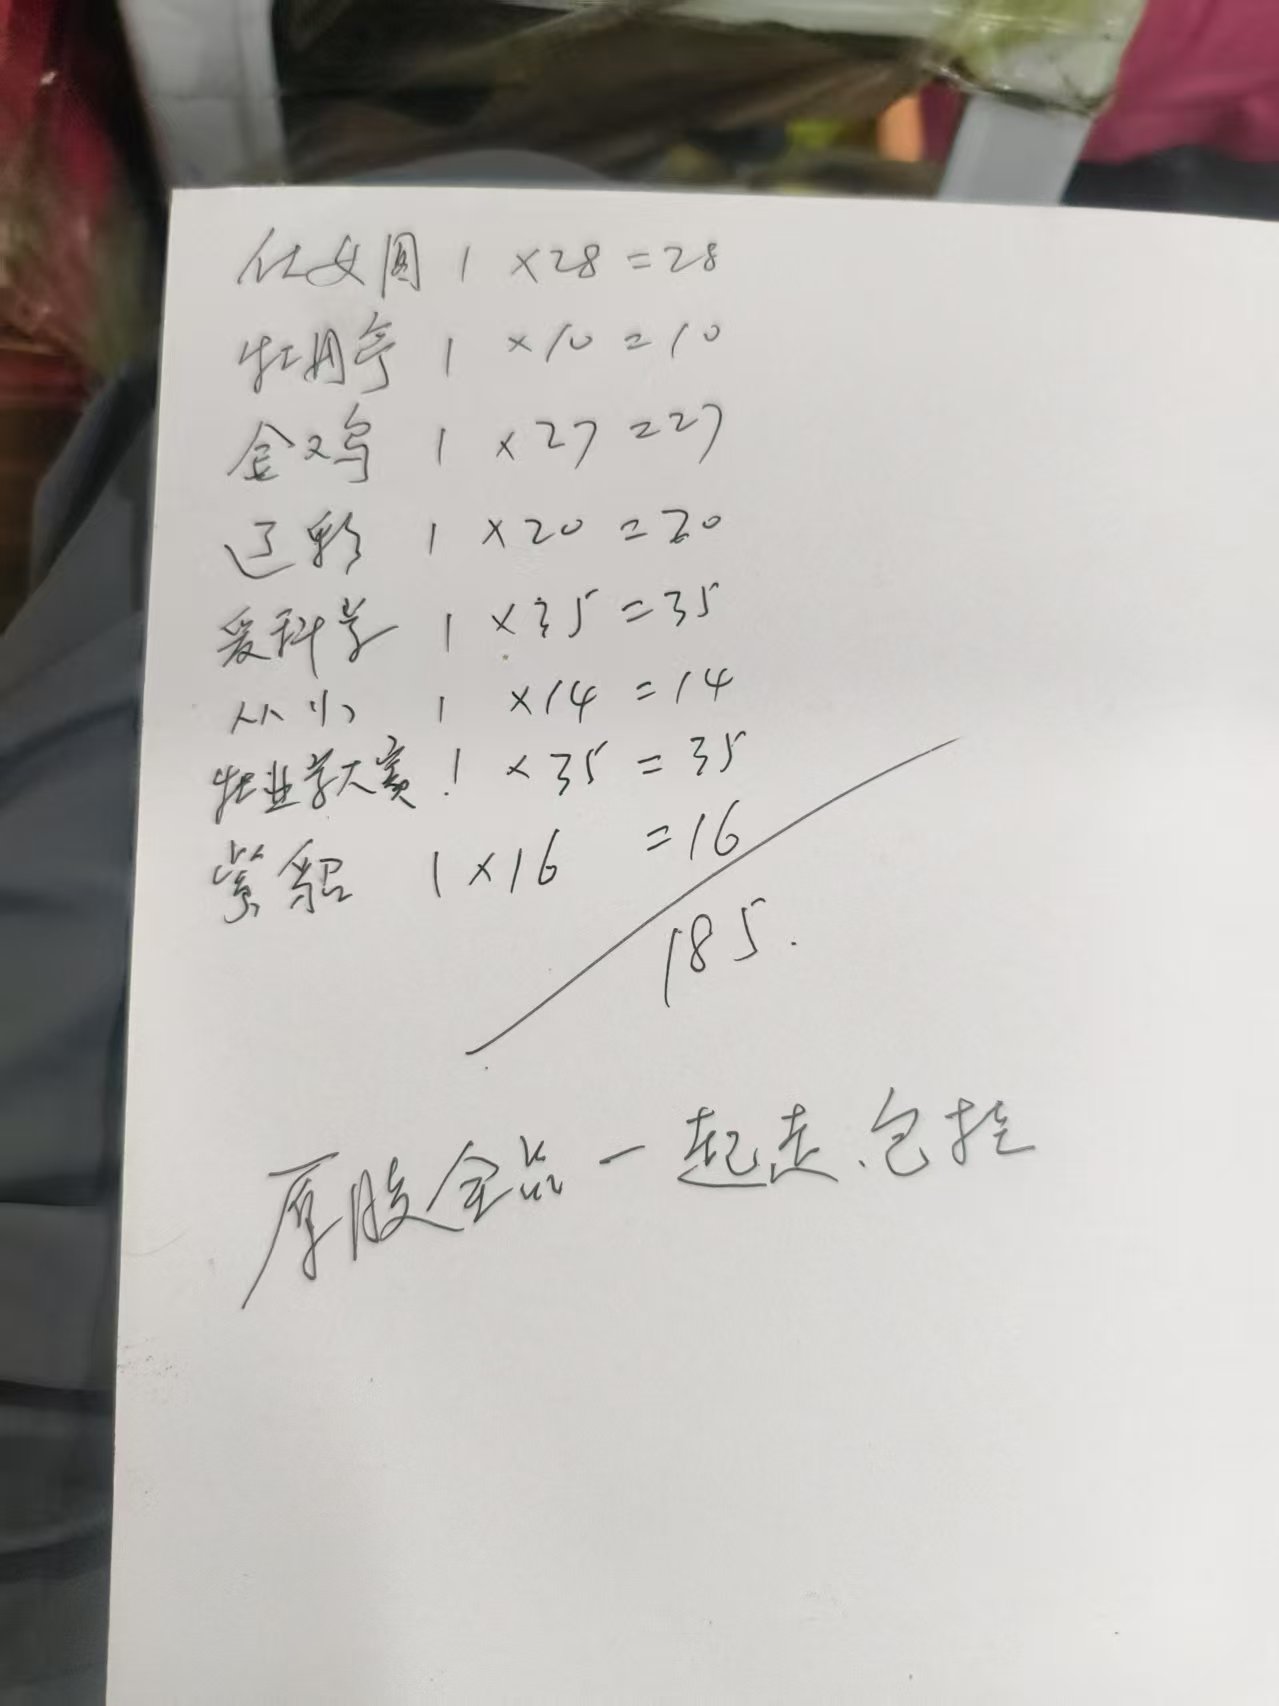 仕女图 1 ×28 =28
牡丹亭 1 ×10 =10
金鸡 1 ×27 =27
辽彩 1 ×20 =20
爱科学 1 ×35 =35
从小 1 ×14 =14
牡业学大寨 1 ×35 =35
紫貂 1 ×16 =16
185.
厚胶全品一起走、包挂